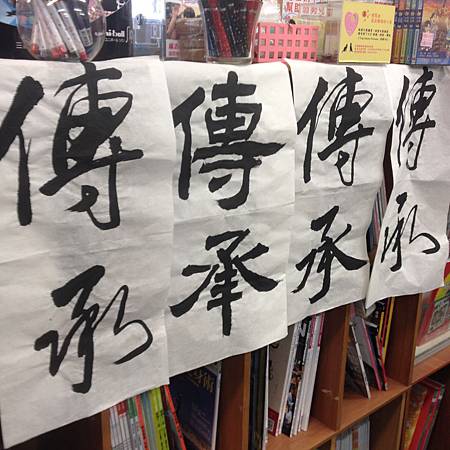 傳承
傳承
傳承
傳承